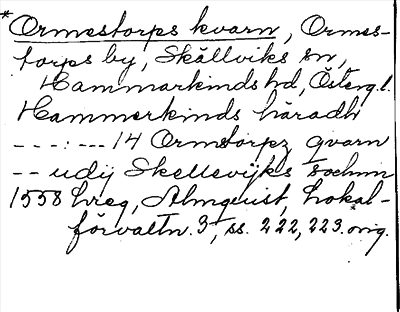 * Ormestorps kvarn, Ormes-
torps by, Skällviks sn,
Hammarkinds hd, Östergl.
Hammerkinds häradh
---:--- 14 Ormstorpz qvarn
-- udij Skellevijks sochnn
1558 hreg, Almquist, Lokal-
förvaltn. 3, ss. 222, 223. orig.